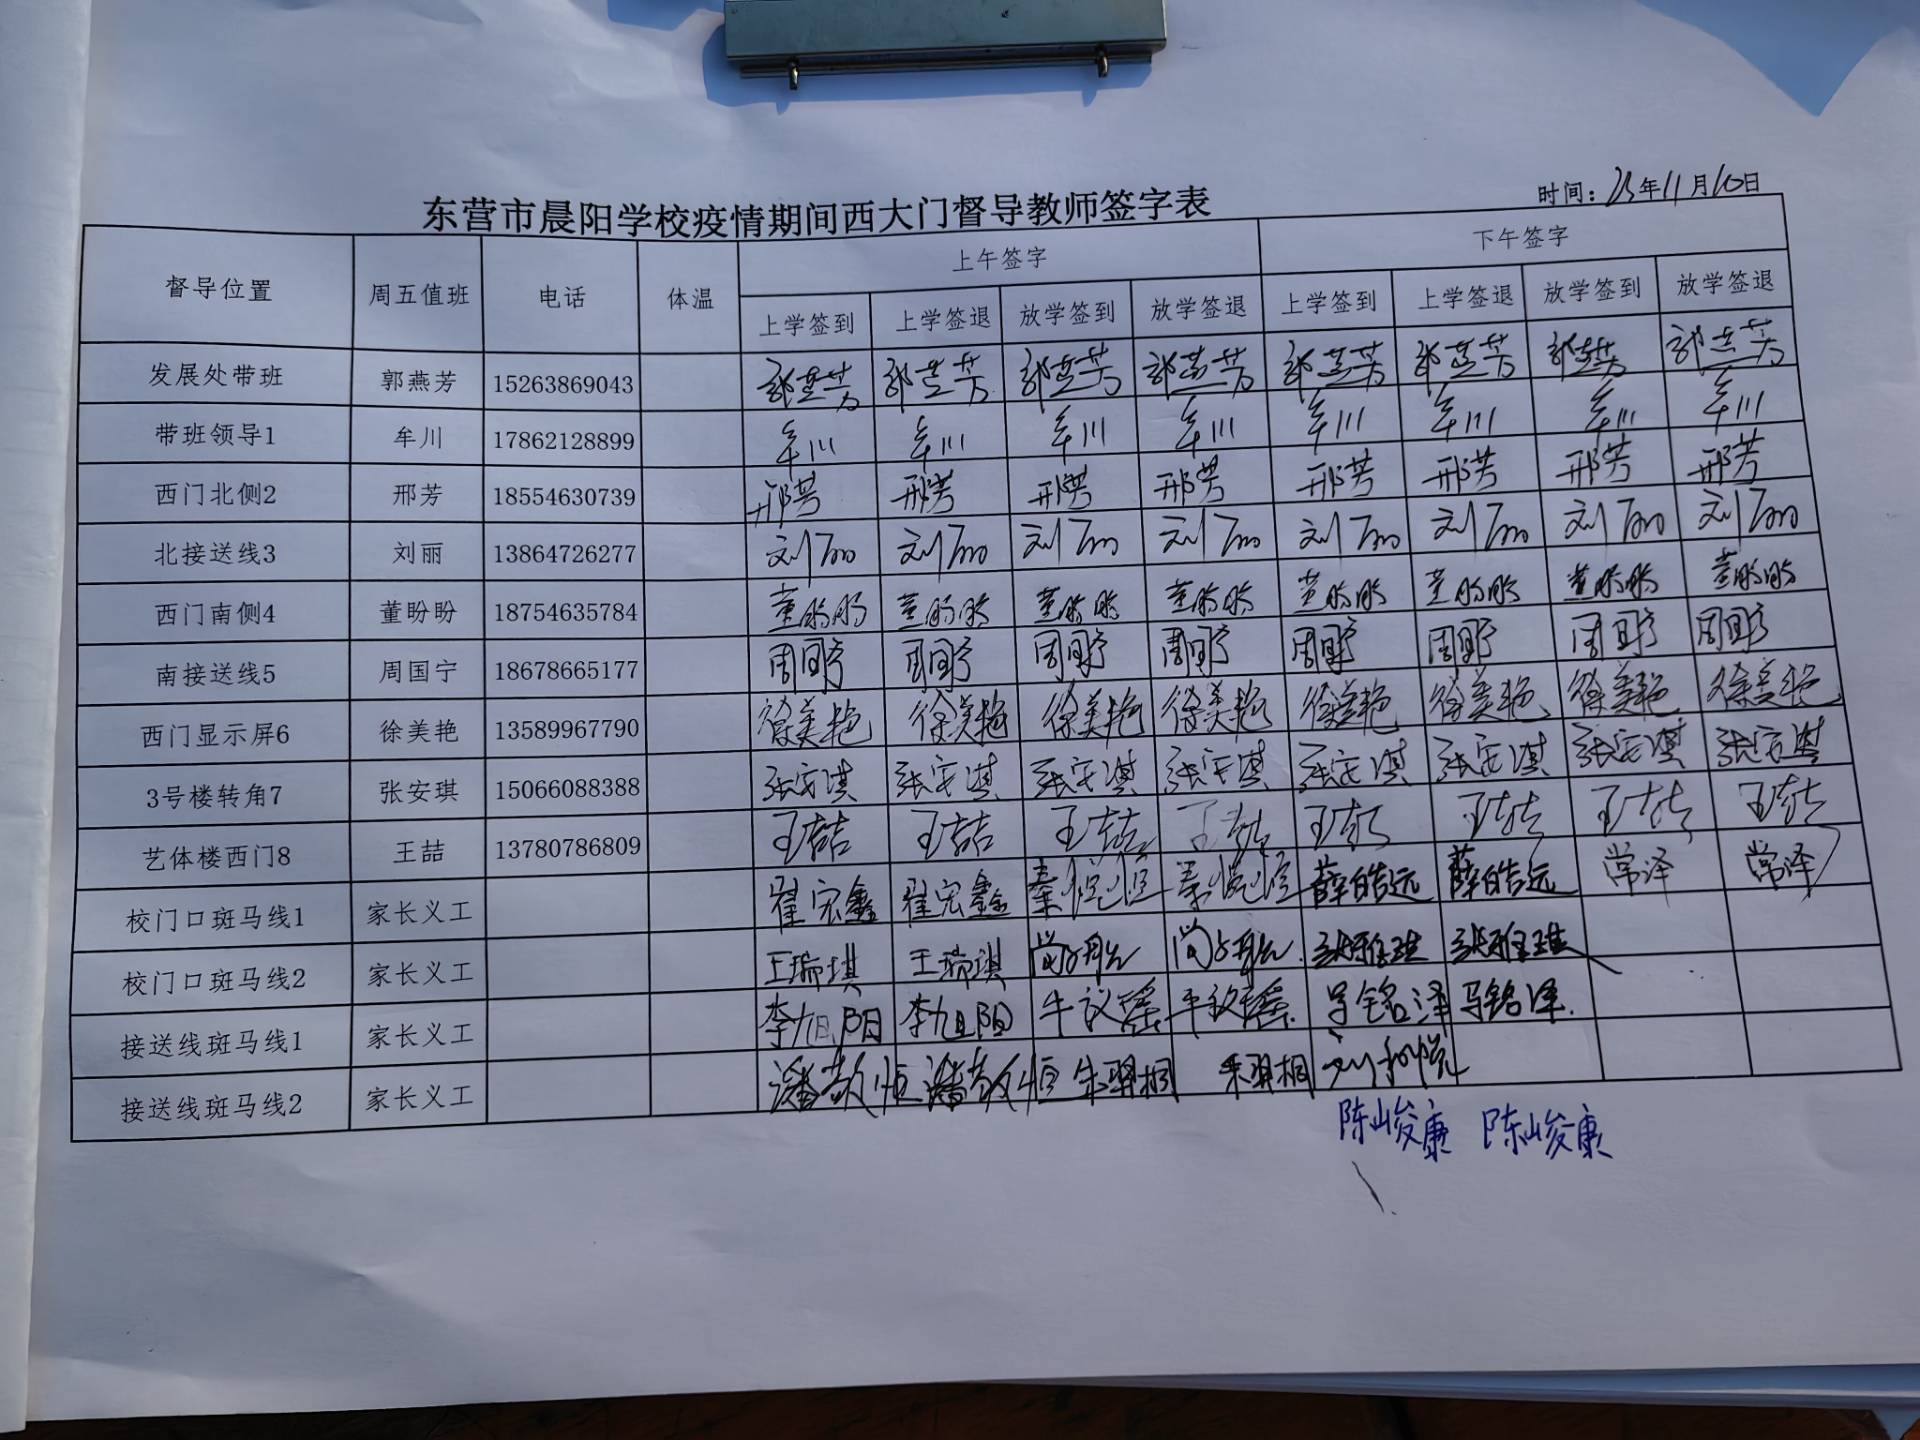 时间：23年11月10日
东营市晨阳学校疫情期间西大门督导教师签字表
督导位置 周五值班 电话 体温 上午签字 下午签字
上学签到 上学签退 放学签到 放学签退 上学签到 上学签退 放学签到 放学签退
发展处带班 郭燕芳 15263869043 郭燕芳 郭燕芳 郭燕芳 郭燕芳 郭燕芳 郭燕芳 郭燕芳 郭燕芳
带班领导1 牟川 17862128899 牟川 牟川 牟川 牟川 牟川 牟川 牟川 牟川
西门北侧2 邢芳 18554630739 邢芳 邢芳 邢芳 邢芳 邢芳 邢芳 邢芳 邢芳
北接送线3 刘丽 13864726277 刘丽 刘丽 刘丽 刘丽 刘丽 刘丽 刘丽 刘丽
西门南侧4 董盼盼 18754635784 董盼盼 董盼盼 董盼盼 董盼盼 董盼盼 董盼盼 董盼盼 董盼盼
南接送线5 周国宁 18678665177 周国宁 周国宁 周国宁 周国宁 周国宁 周国宁 周国宁 周国宁
西门显示屏6 徐美艳 13589967790 徐美艳 徐美艳 徐美艳 徐美艳 徐美艳 徐美艳 徐美艳 徐美艳
3号楼转角7 张安琪 15066088388 张安琪 张安琪 张安琪 张安琪 张安琪 张安琪 张安琪 张安琪
艺体楼西门8 王喆 13780786809 王喆 王喆 王喆 王喆 王喆 王喆 王喆 王喆
校门口斑马线1 家长义工 翟宏鑫 翟宏鑫 秦悦恒 秦悦恒 薛皓远 薛皓远 常泽 常泽
校门口斑马线2 家长义工 王瑞琪 王瑞琪 张雅琪 张雅琪
接送线斑马线1 家长义工 李旭阳 李旭阳 牛议瑶 牛议瑶 马铭泽 马铭泽
接送线斑马线2 家长义工 潘敬恒 潘敬恒 朱羿桐 朱羿桐
陈峻康 陈峻康